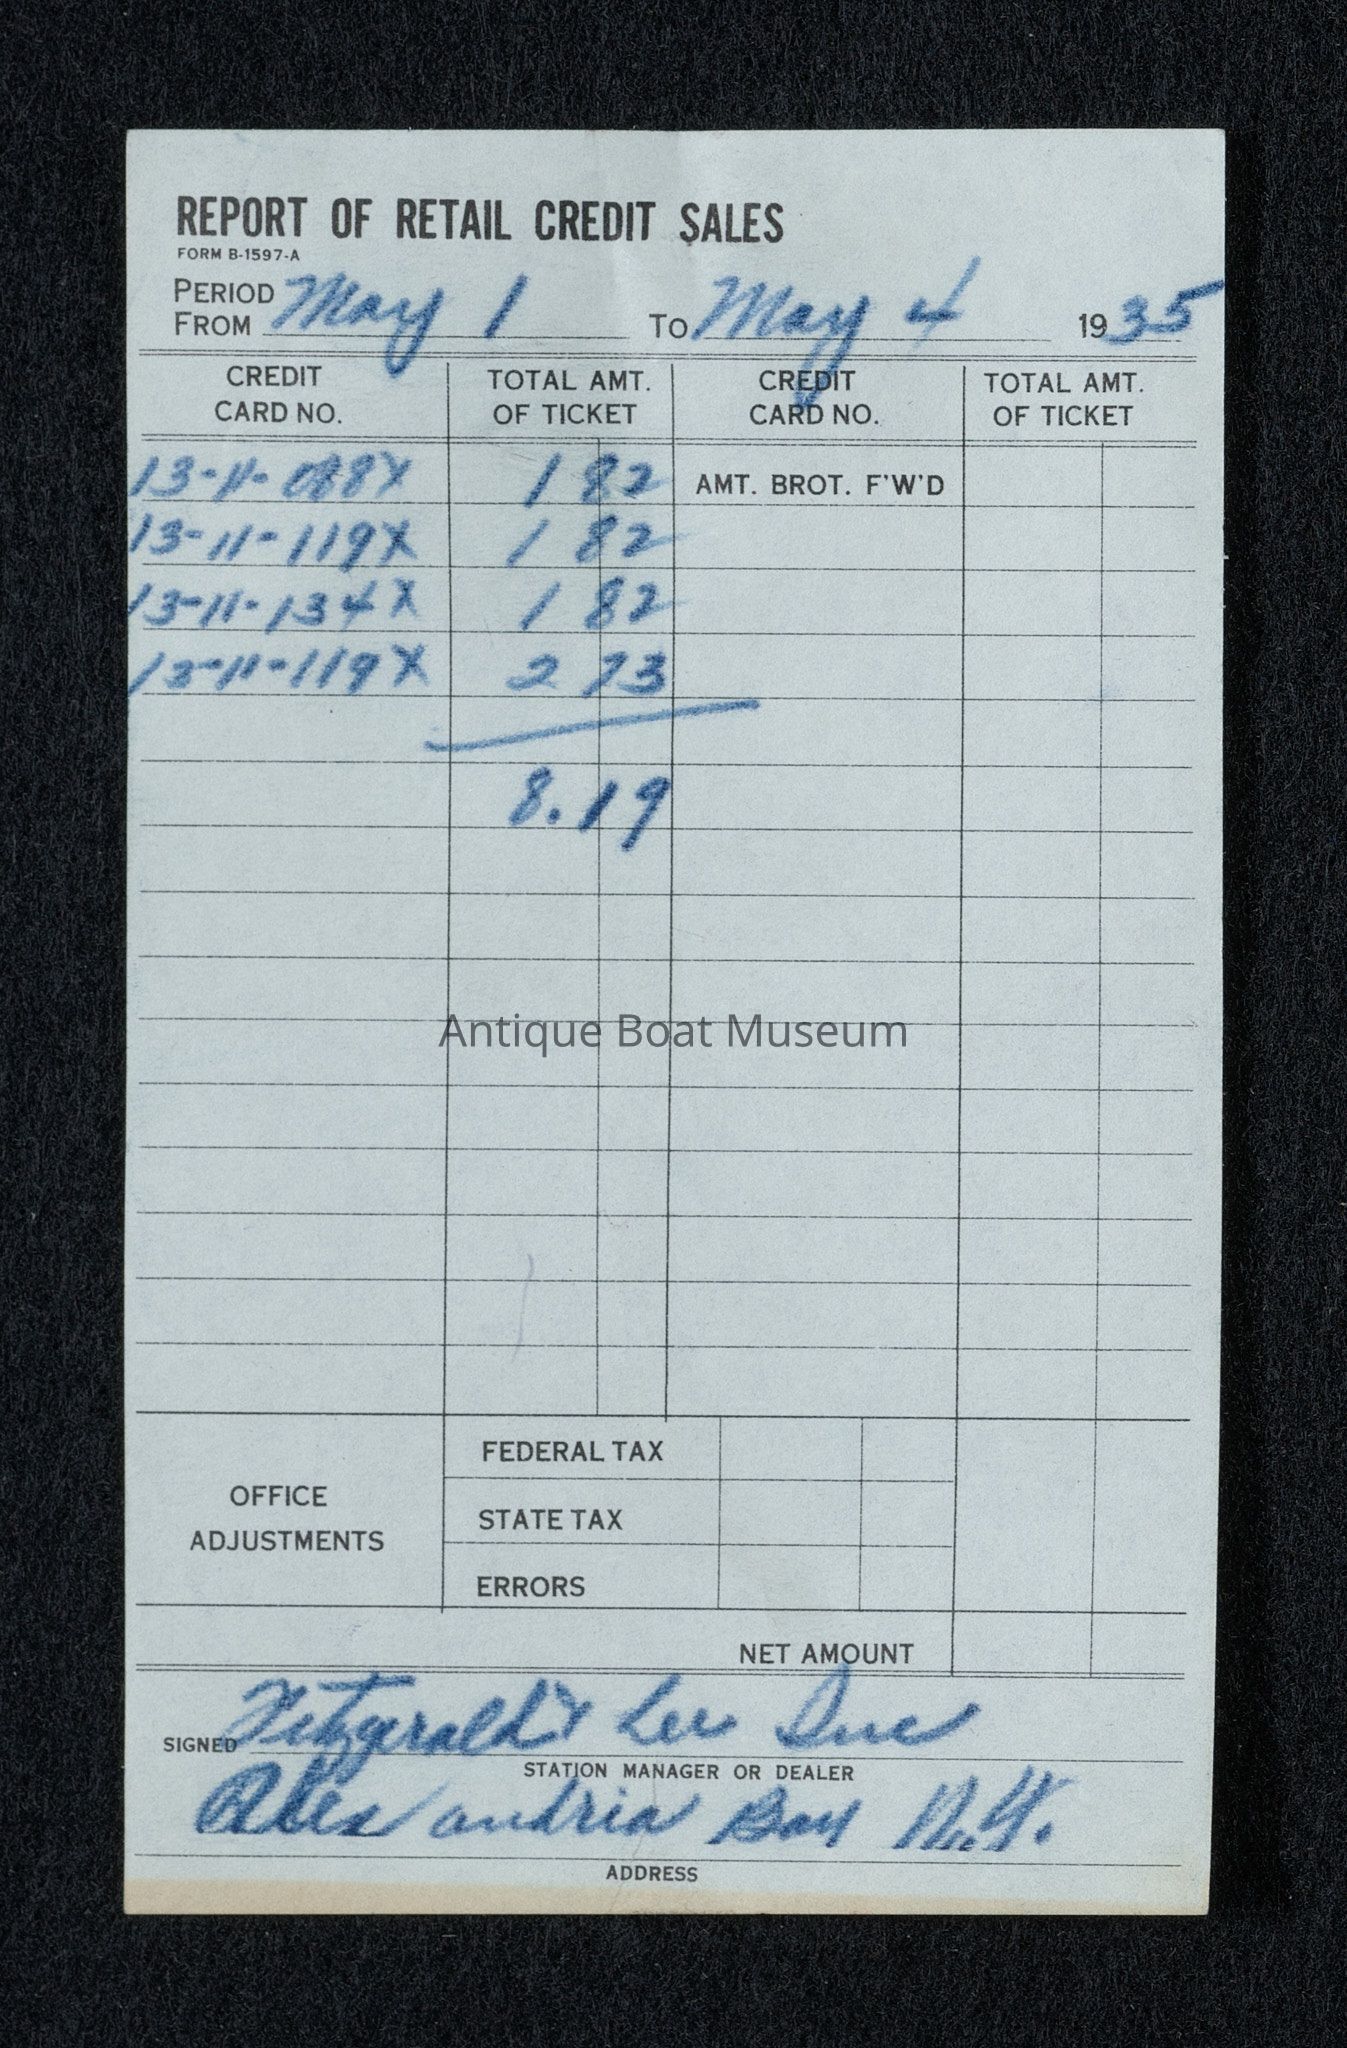 REPORT OF RETAIL CREDIT SALES
FORM B-1597-A
PERIOD
FROM May 1 To May 4 1935
CREDIT CARD NO. TOTAL AMT. OF TICKET CREDIT CARD NO. TOTAL AMT. OF TICKET
13-11-088X 1 82 AMT. BROT. F'W'D
13-11-119X 1 82
13-11-134X 1 82
13-11-119X 2 73
8.19
Antique Boat Museum
FEDERAL TAX
OFFICE ADJUSTMENTS
STATE TAX
ERRORS
NET AMOUNT
SIGNED Fitzgerald & Lee Inc
STATION MANAGER OR DEALER
Alexandria Bay N.Y.
ADDRESS